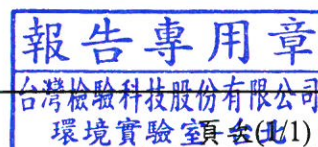 報告專用章
台灣檢驗科技股份有限公司
環境實驗室-台北
頁次(1/1)